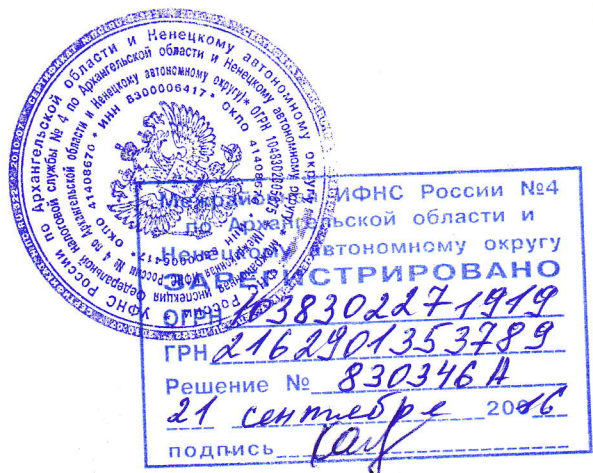 УФНС России по Архангельской области и Ненецкому автономному округу
Федеральной налоговой службы № 4 по Архангельской области и Ненецкому автономному округу
* ИНН 8300006417 * ОКПО 41408670 *
Межрайонная ИФНС России №4
по Архангельской области и
Ненецкому автономному округу
ЗАРЕГИСТРИРОВАНО
ОГРН 1038302271919
ГРН 2162901353789
Решение № 830346А
21 сентября 2016
подпись